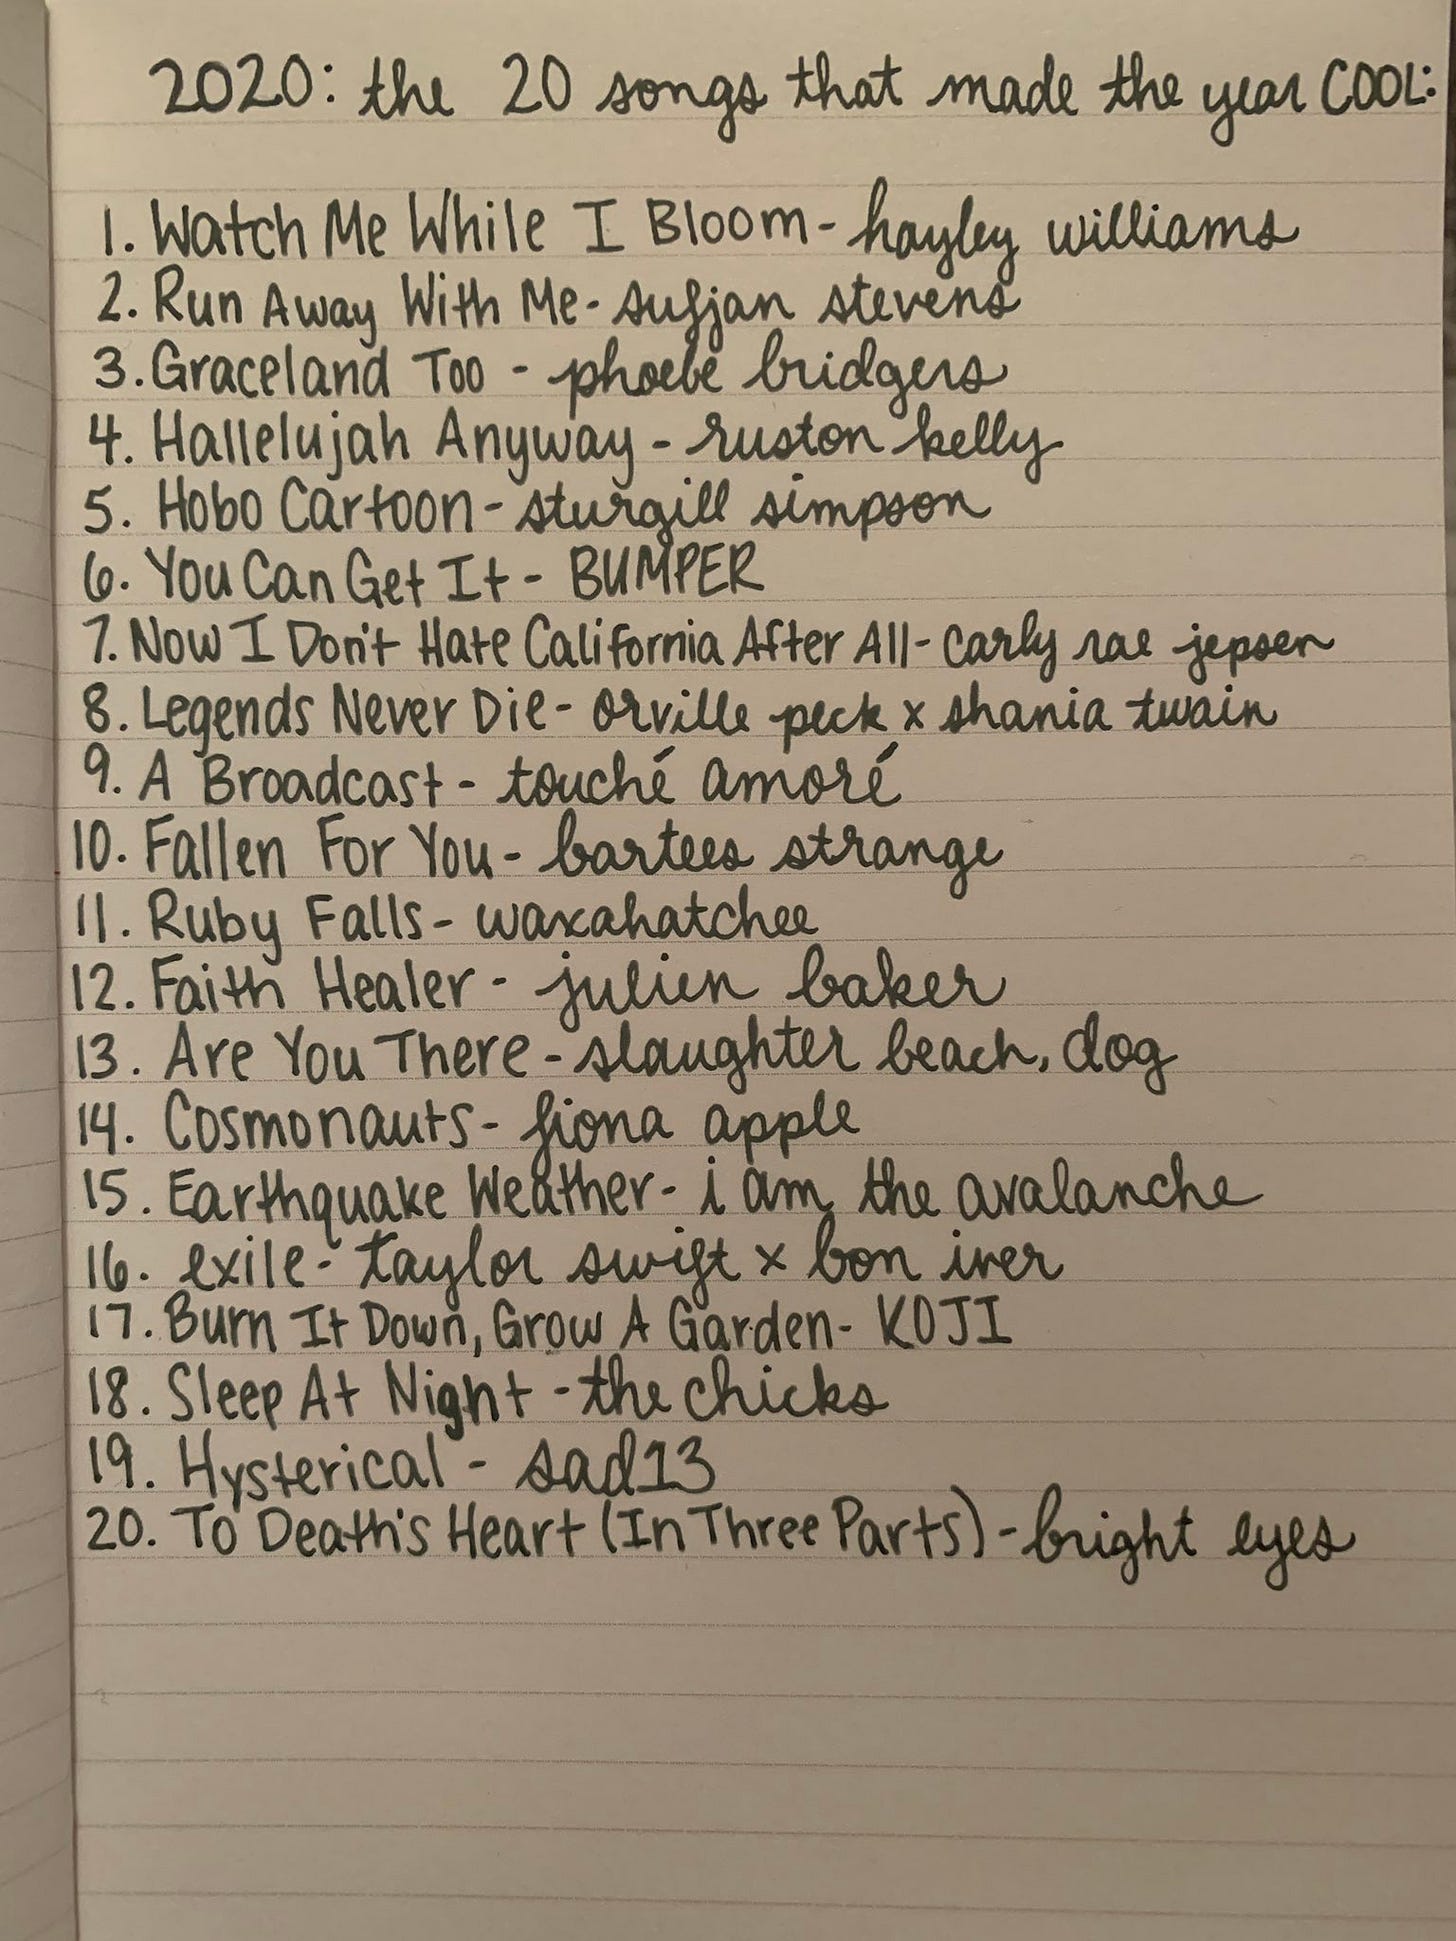 2020: the 20 songs that made the year COOL:
1. Watch Me While I Bloom - hayley williams
2. Run Away With Me - sufjan stevens
3. Graceland Too - phoebe bridgers
4. Hallelujah Anyway - ruston kelly
5. Hobo Cartoon - sturgill simpson
6. You Can Get It - BUMPER
7. Now I Don't Hate California After All - carly rae jepsen
8. Legends Never Die - orville peck x shania twain
9. A Broadcast - touché amoré
10. Fallen For You - bartees strange
11. Ruby Falls - waxahatchee
12. Faith Healer - julien baker
13. Are You There - slaughter beach, dog
14. Cosmonauts - fiona apple
15. Earthquake Weather - i am the avalanche
16. exile - taylor swift x bon iver
17. Burn It Down, Grow A Garden - KOJI
18. Sleep At Night - the chicks
19. Hysterical - sad13
20. To Death's Heart (In Three Parts) - bright eyes